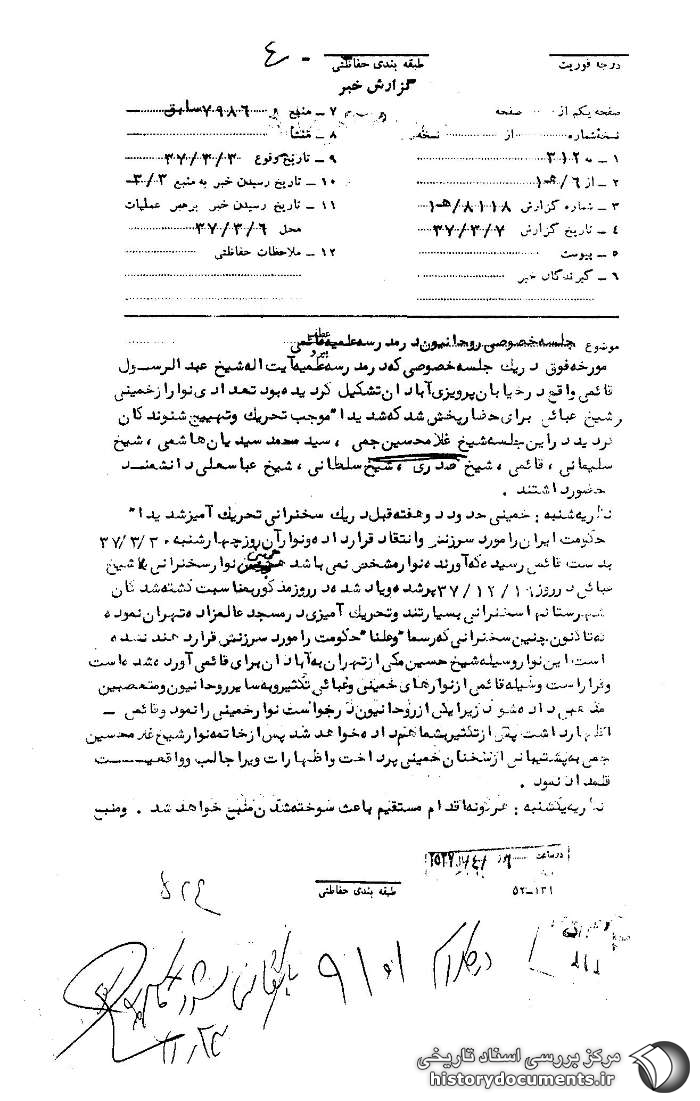 درجه فوریت
طبقه بندی حفاظتی
گزارش خبر
صفحه یکم از صفحه
نسخه شماره از نسخه
۱ – به ۳۱۲
۲ – از ۶/هـ۱
۳ – شماره گزارش ۸۱۱۸/هـ۱
۴ – تاریخ گزارش ۳۷/۳/۷
۵ – پیوست
۶ – گیرندگان خبر
۷ – منبع ۷۹۸۶ سابق
۸ – منشأ
۹ – تاریخ وقوع ۳۷/۳/۳
۱۰ – تاریخ رسیدن خبر به منبع ۳/۳
۱۱ – تاریخ رسیدن خبر برهبر عملیات
محل ۳۷/۳/۶
۱۲ – ملاحظات حفاظتی
موضوع جلسه خصوصی روحانیون در مدرسه علمیه قائمی
مورخه فوق در یک جلسه خصوصی که در مدرسه علمیه آیت اله شیخ عبدالرسول
قائمی واقع در خیابان پرویزی آبادان تشکیل گردیده بود تعدادی نوار از خمینی
و شیخ عبائی برای حضار پخش شد که شدیدا" موجب تحریک و تهییج شنوندگان
گردید در این جلسه شیخ غلامحسین جمی ، سید محمد سیدیان هاشمی ، شیخ
سلیمانی ، قائمی ، شیخ صدری ، شیخ سلطانی ، شیخ عباسعلی دانشمند
حضور داشتند .
نظریه شنبه : خمینی حدود دو هفته قبل در یک سخنرانی تحریک آمیز شدیدا"
حکومت ایران را مورد سرزنش و انتقاد قرار داده و نوار آن روز چهارشنبه ۳۷/۳/۳
بدست قائمی رسیده که آورنده نوار مشخص نمی باشد نوار سخنرانی شیخ
عبائی در روز ۳۷/۱۲/۱۶ پر شده و یاد شده در روز مذکور بمناسبت کشته شدگان
شهرستانها سخنرانی بسیار تند و تحریک آمیزی در مسجد تهران نموده
که تاکنون چنین سخنرانی که رسما" و علنا" حکومت را مورد سرزنش قرار دهد نشده
است این نوار وسیله شیخ حسین مکی از تهران به آبادان برای قائمی آورده شده است
و قرار است وسیله قائمی از نوارهای خمینی و عبائی تکثیر و به سایر روحانیون و متعصبین
مذهبی داده شود زیرا یکی از روحانیون درخواست نوار خمینی را نمود و قائمی –
اظهار داشت پس از تکثیر بشما هم داده خواهد شد پس از خاتمه نوار شیخ غلامحسین
جمی به پشتیبانی از سخنان خمینی پرداخت و اظهارات ویرا جالب و واقعیت
قلمداد نمود .
نظریه یکشنبه : هرگونه اقدام مستقیم باعث سوخته شدن منبع خواهد شد . و منبع
در ساعت روز
۵۲–۱۳۱
طبقه بندی حفاظتی
مرکز بررسی اسناد تاریخی
historydocuments.ir